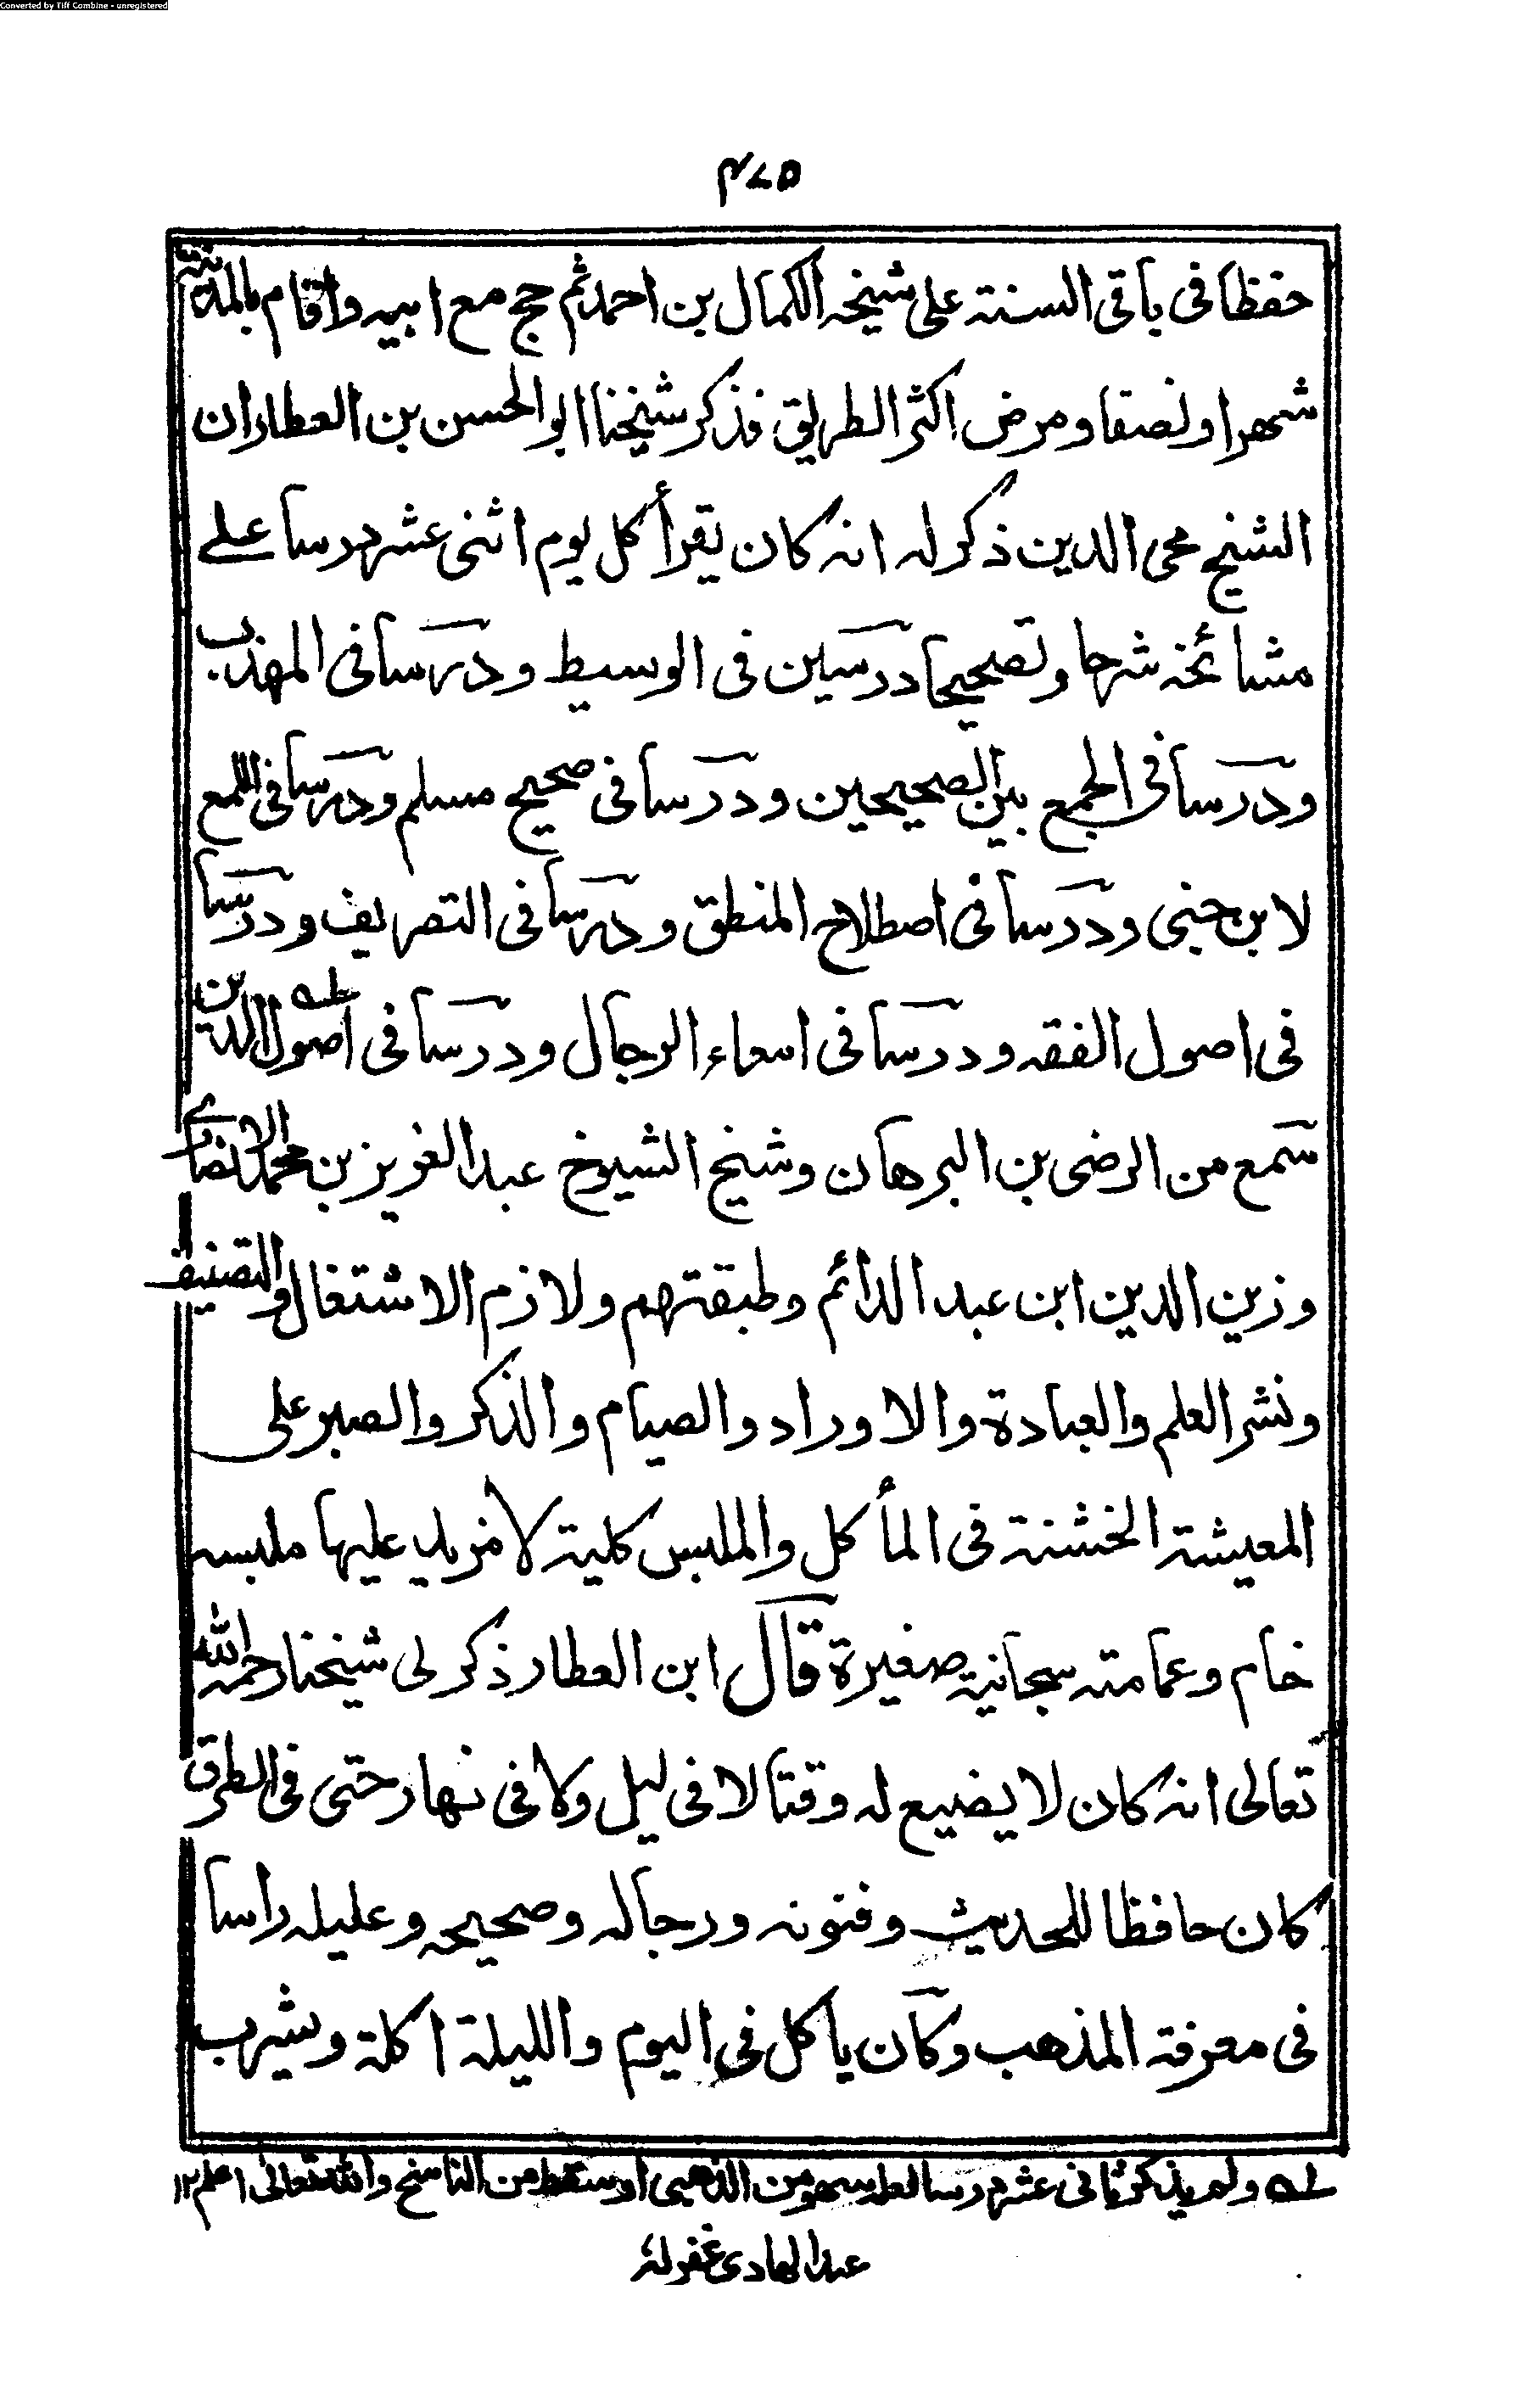 Converted by Tiff Combine - unregistered
٤٧٥
حفظا فى باقى السنة على شيخه الكمال بن احمد ثم حج مع ابيه واقام بالمدينة
شهرا ونصفا ومرض اكثر الطريق فذكر شيخنا ابو الحسن بن العطار ان
الشيخ محى الدين ذكر له انه كان يقرأ كل يوم اثنى عشر درسا علے
مشائخه شرحا وتصحيحا درسين فى الوسيط ودرسا فى المهذب
ودرسا فى الجمع بين الصحيحين ودرسا فى صحيح مسلم ودرسا فى اللمع
لابن جنى ودرسا فى اصطلاح المنطق ودرسا فى التصريف ودرسا
فى اصول الفقه ودرسا فى اسماء الرجال ودرسا فى اصول الدين
سمع من الرضى بن البرهان وشيخ الشيوخ عبد العزيز بن محمد الانصارے
وزين الدين ابن عبد الدائم وطبقتهم ولازم الاشتغال والتصنيف
ونشر العلم والعبادة والاوراد والصيام والذكر والصبر على
المعيشة الخشنة فى المأكل والملبس كلية لا مزيد عليها ملبسه
خام وعمامته سبحانية صغيرة قال ابن العطار ذكر لى شيخنا رحمه الله
تعالى انه كان لا يضيع له وقتا لا فى ليل ولا فى نهار حتى فى الطرق
كان حافظا للحديث وفنونه ورجاله وصحيحه وعليله راسا
فى معرفة المذهب وكان ياكل فى اليوم والليلة اكلة ويشرب
ولم يذكر ثانى عشر درسا لعله سهو من الذهبى او سقط من الناسخ والله تعالى اعلم ١٢
عبد الهادى غفر له